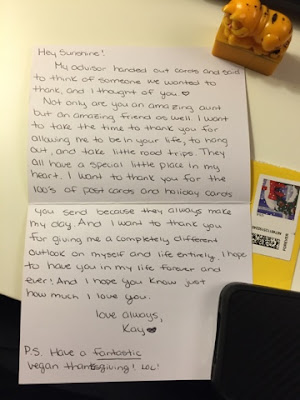 Hey Sunshine!
My advisor handed out cards and said
to think of someone we wanted to
thank, and I thought of you. ♡
Not only are you an amazing aunt
but an amazing friend as well. I want
to take the time to thank you for
allowing me to be in your life, to hang
out, and take little road trips. They
all have a special little place in my
heart. I want to thank you for the
100's of post cards and holiday cards
you send because they always make
my day. And I want to thank you
for giving me a completely different
outlook on myself and life entirely. I hope
to have you in my life forever and
ever! And I hope you know just
how much I love you.
love always,
Kay ♥
P.S. Have a fantastic
vegan thanksgiving! LOL!
FOREVER